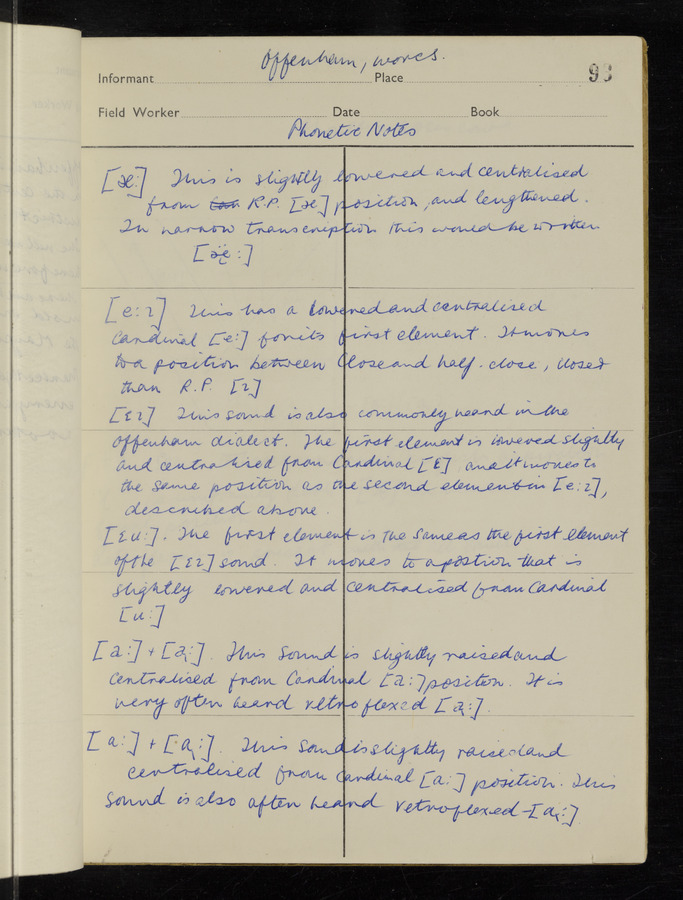 Offenham, Worcs.
Informant Place 93
Field Worker Date Book
Phonetic Notes
[æ:] This is slightly lowered and centralised
from R.P. [æ] position, and lengthened.
In narrow transcription this would be written
[æ̈˕:]
[e:ɪ] This has a lowered and centralised
Cardinal [e:] for its first element. It moves
to a position between Close and half-close, closer
than R.P. [ɪ]
[ɛɪ] This sound is also commonly heard in the
Offenham dialect. The first element is lowered slightly
and centralised from Cardinal [ɛ] and it moves to
the same position as the second element in [e:ɪ],
described above.
[ɛu:]. The first element is the same as the first element
of the [ɛɪ] sound. It moves to a position that is
slightly lowered and centralised from Cardinal
[u:]
[a:] + [a̢:]. This sound is slightly raised and
centralised from Cardinal [a:] position. It is
very often heard retroflexed [a̢:].
[ɑ:] + [ɑ̢:]. This sound is slightly raised and
centralised from Cardinal [ɑ:] position. This
sound is also often heard retroflexed - [ɑ̢:]